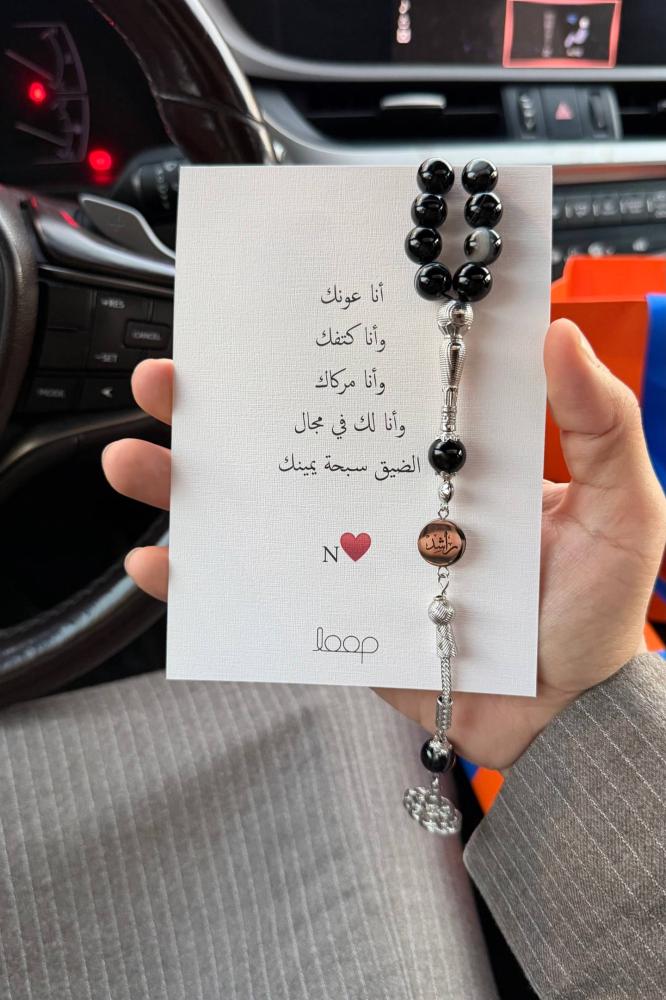 RES
CANCEL
SET
MODE
أنا عونك
وأنا كتفك
وأنا مركاك
وأنا لك في مجال
الضيق سبحة يمينك
N❤️
راشد
loop